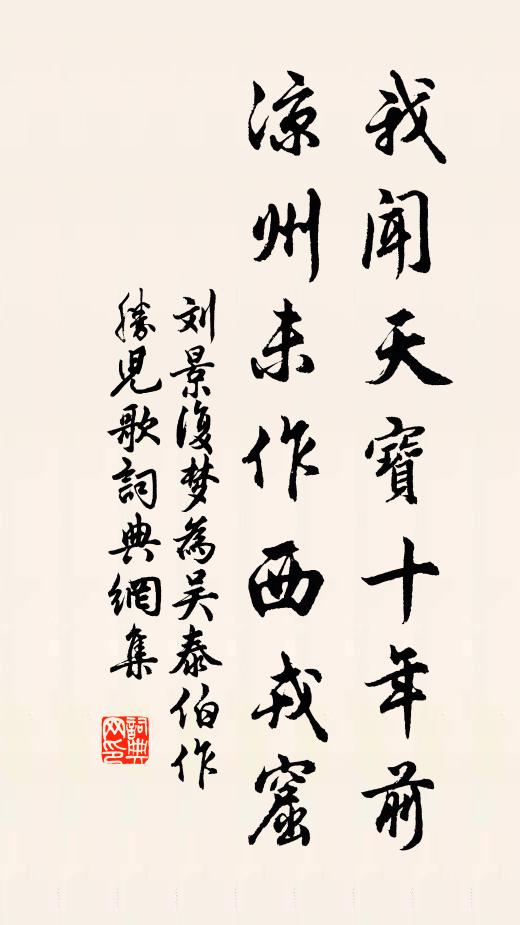 我闻天寶十年前
凉州未作西戎窟
刘景復梦為吴泰伯作
勝児歌詞典網集
詞典
网印